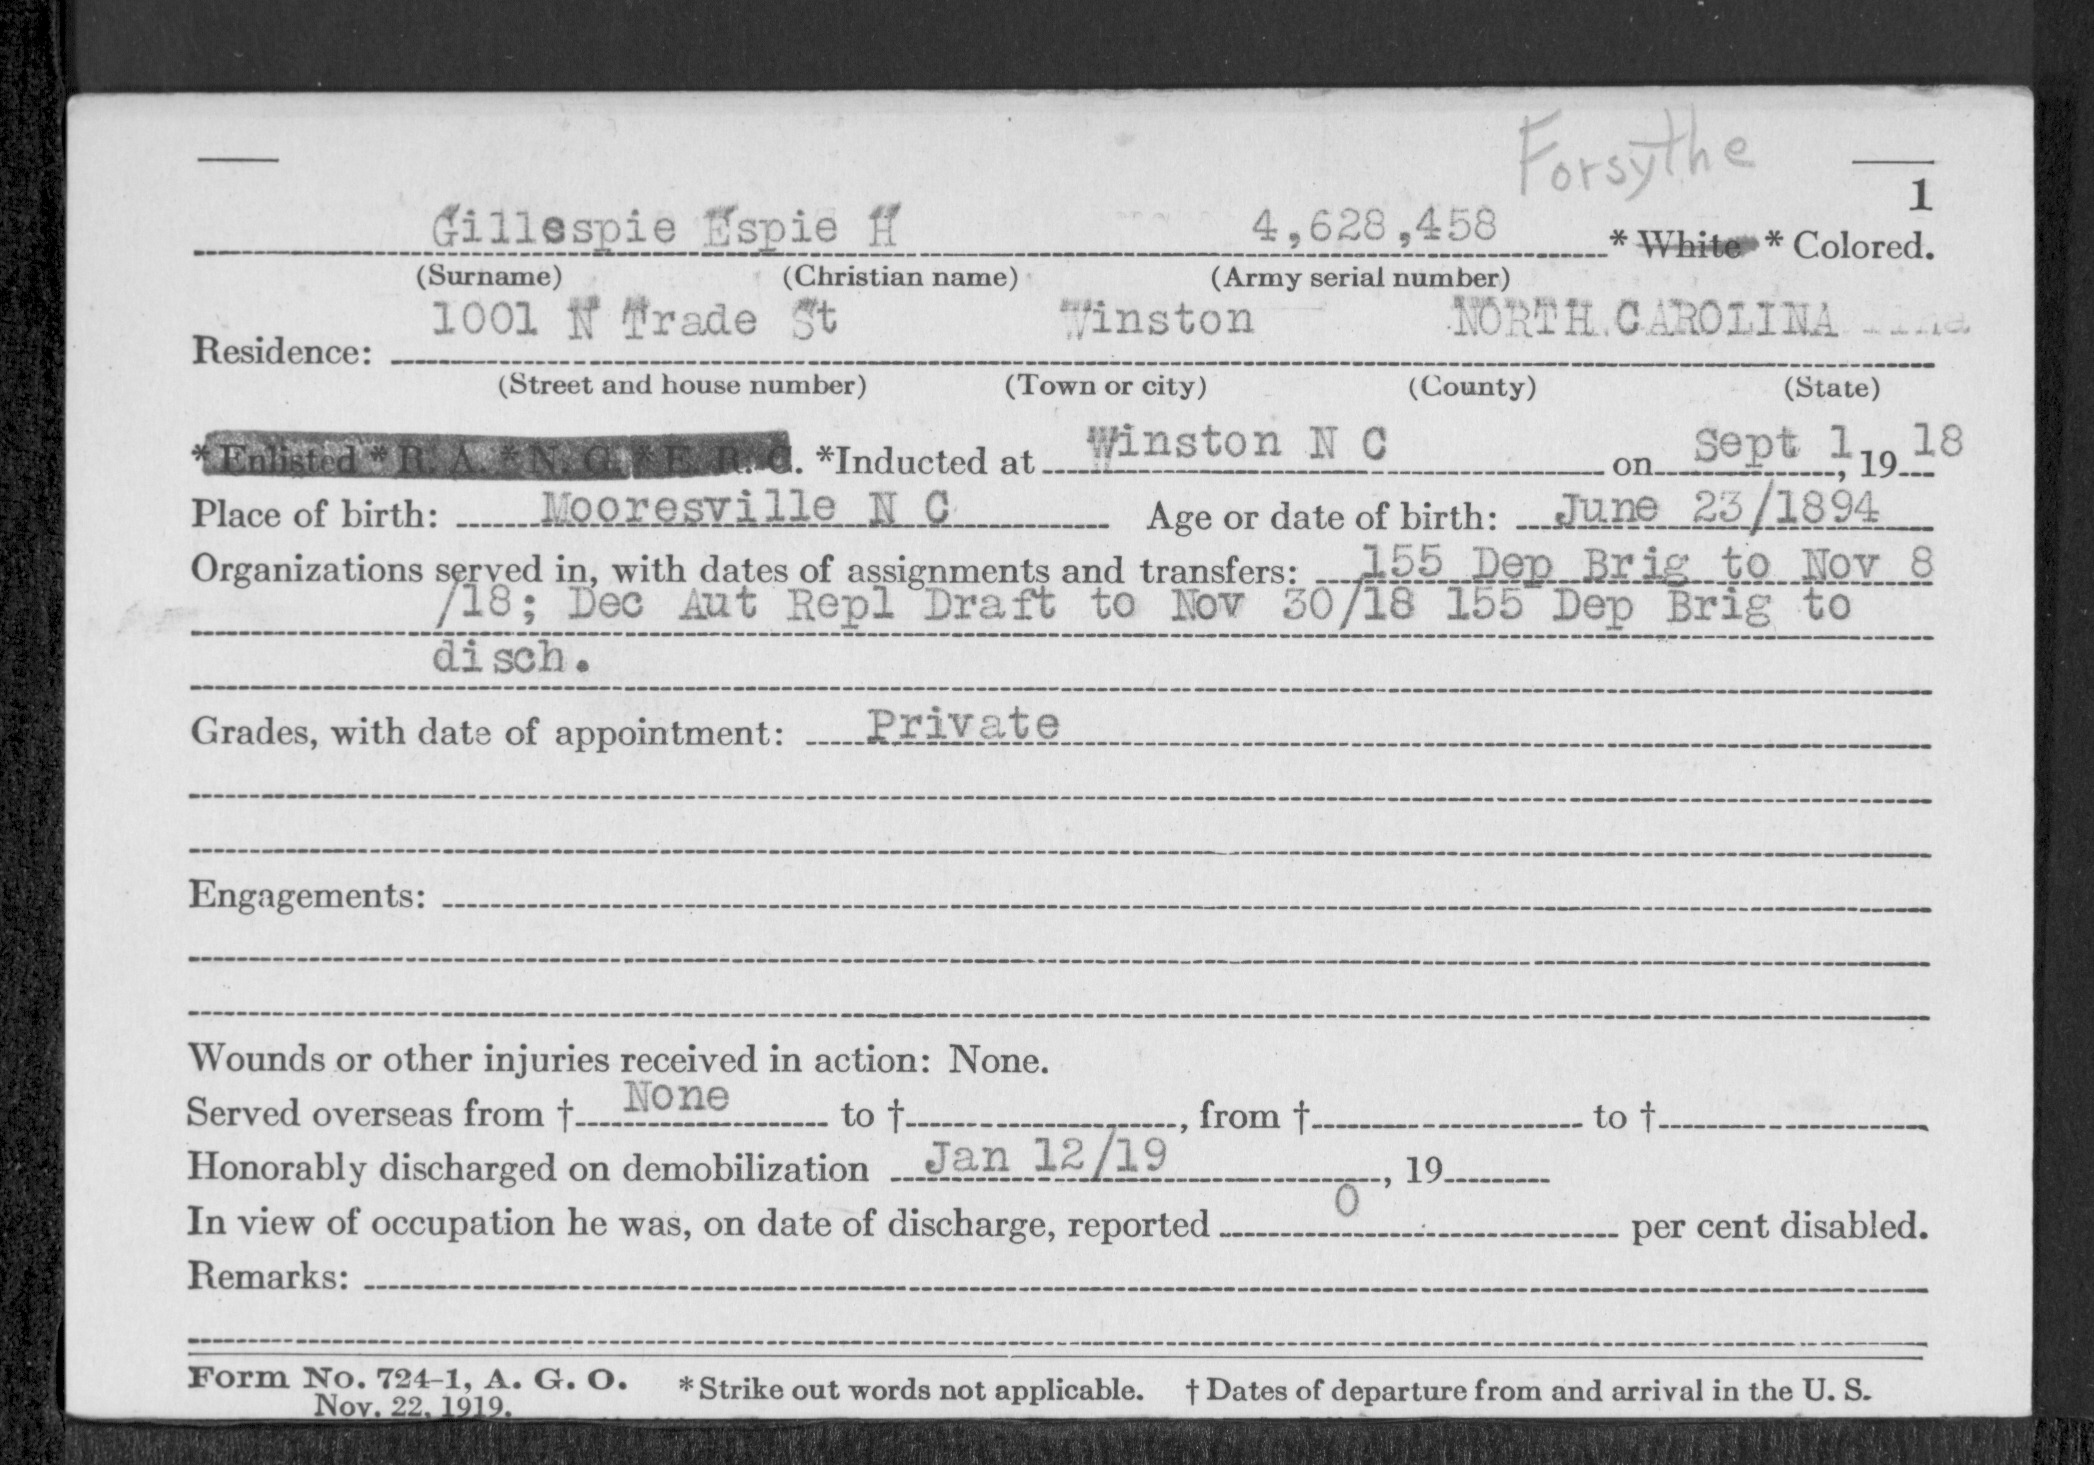 Forsythe
1
Gillespie Espie H 4,628,458 * White * Colored.
(Surname) (Christian name) (Army serial number)
1001 N Trade St Winston NORTH CAROLINA
Residence:
(Street and house number) (Town or city) (County) (State)
* Enlisted * R. A. * N. G. * E. R. C. *Inducted at Winston N C on Sept 1, 19 18
Place of birth: Mooresville N C Age or date of birth: June 23/1894
Organizations served in, with dates of assignments and transfers: 155 Dep Brig to Nov 8
/18; Dec Aut Repl Draft to Nov 30/18 155 Dep Brig to
disch.
Grades, with date of appointment: Private
Engagements:
Wounds or other injuries received in action: None.
Served overseas from † None to †, from † to †
Honorably discharged on demobilization Jan 12/19, 19
In view of occupation he was, on date of discharge, reported 0 per cent disabled.
Remarks:
Form No. 724-1, A. G. O. * Strike out words not applicable. † Dates of departure from and arrival in the U. S.
Nov. 22, 1919.